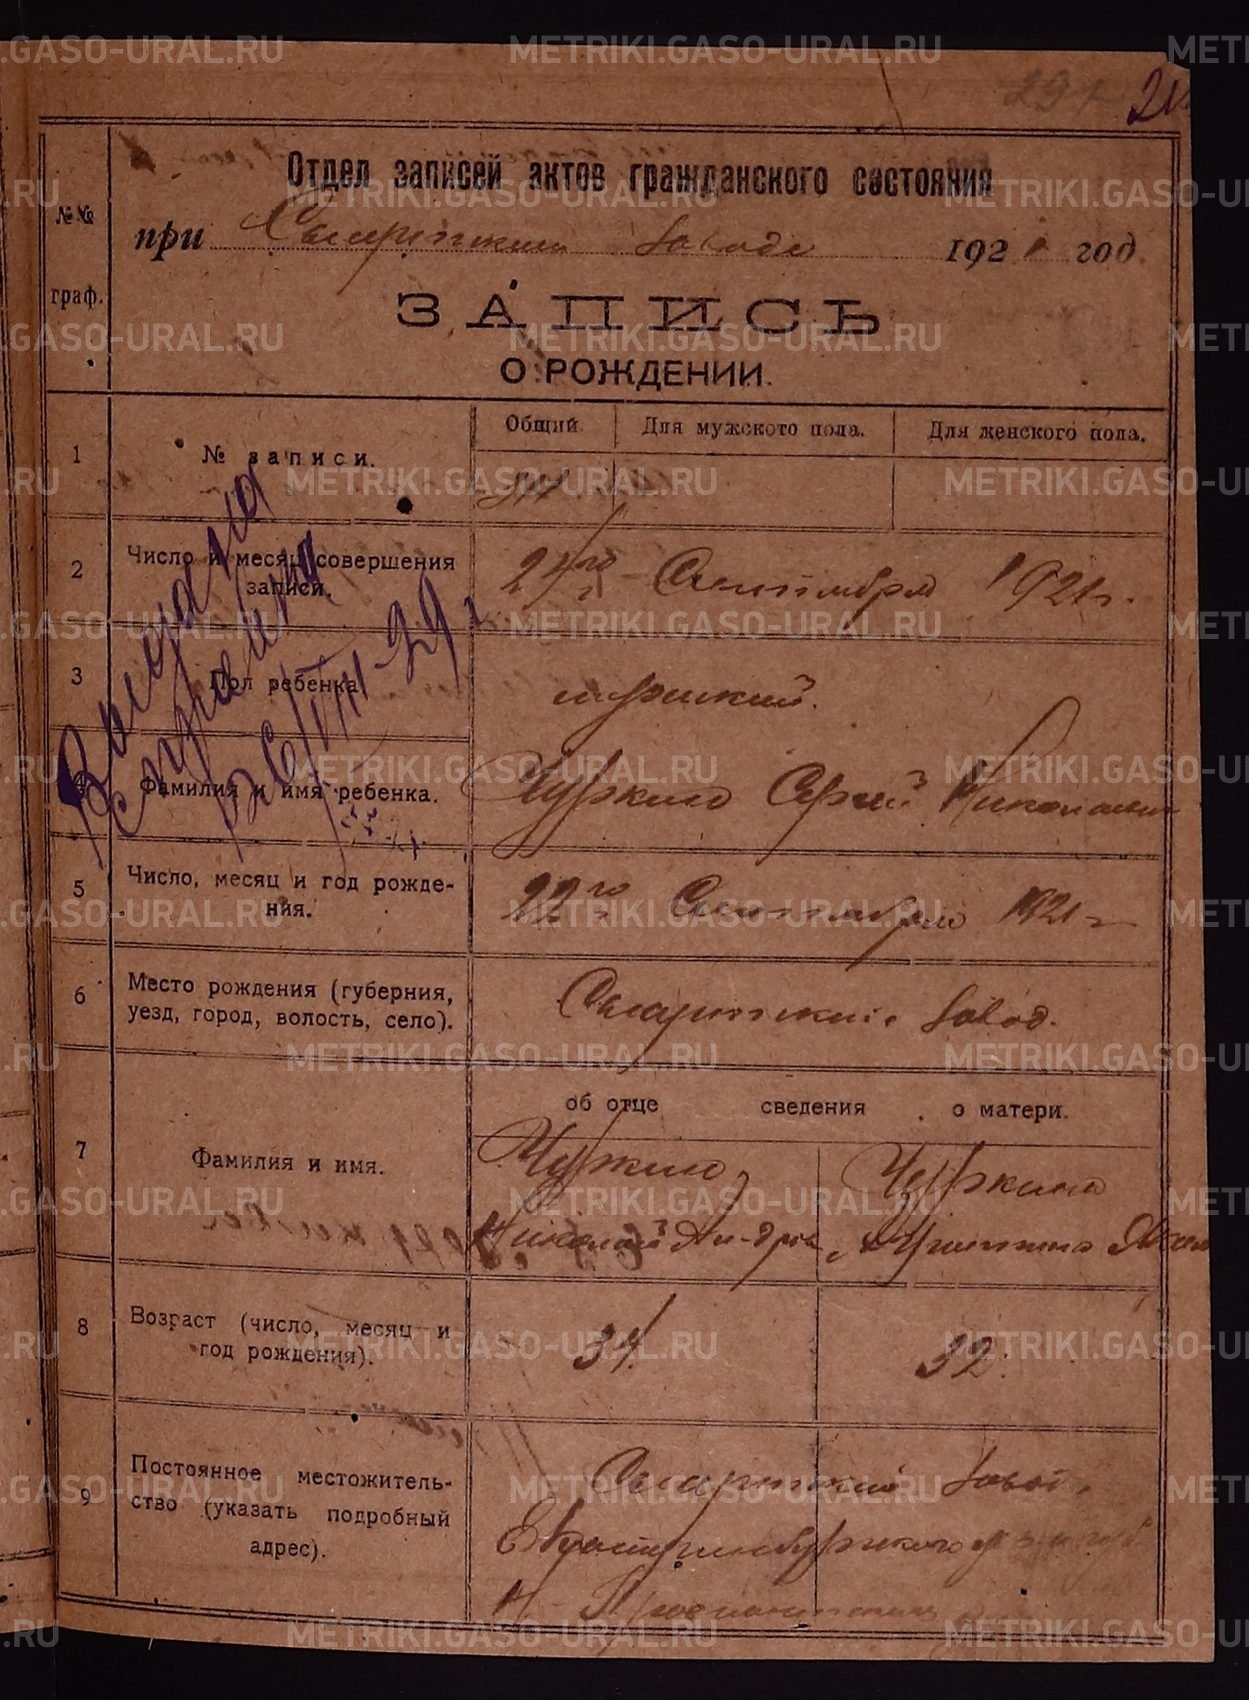 21
Отдел записей актов гражданского состояния
№№
при Сысертском заводе 1921 год.
граф.
ЗАПИСЬ
О РОЖДЕНИИ.
Общий. Для мужского пола. Для женского пола.
1 № записи.
2 Число и месяц совершения
записи.
27го Сентября 1921 г.
3 Пол ребенка
мужской.
Выдана
справка
26/VIII-29 г
4 Фамилия и имя ребенка.
Чуркин Сергей Николаевич
5 Число, месяц и год рожде-
ния.
22го Сентября 1921 г
6 Место рождения (губерния,
уезд, город, волость, село).
Сысертский завод.
об отце сведения о матери.
7 Фамилия и имя.
Чуркин Чуркина
Николай Андров Августина
8 Возраст (число, месяц и
год рождения).
34. 32.
9 Постоянное местожитель-
ство (указать подробный
адрес).
Сысертский завод,
Екатеринбургского уезда
METRIKI.GASO-URAL.RU